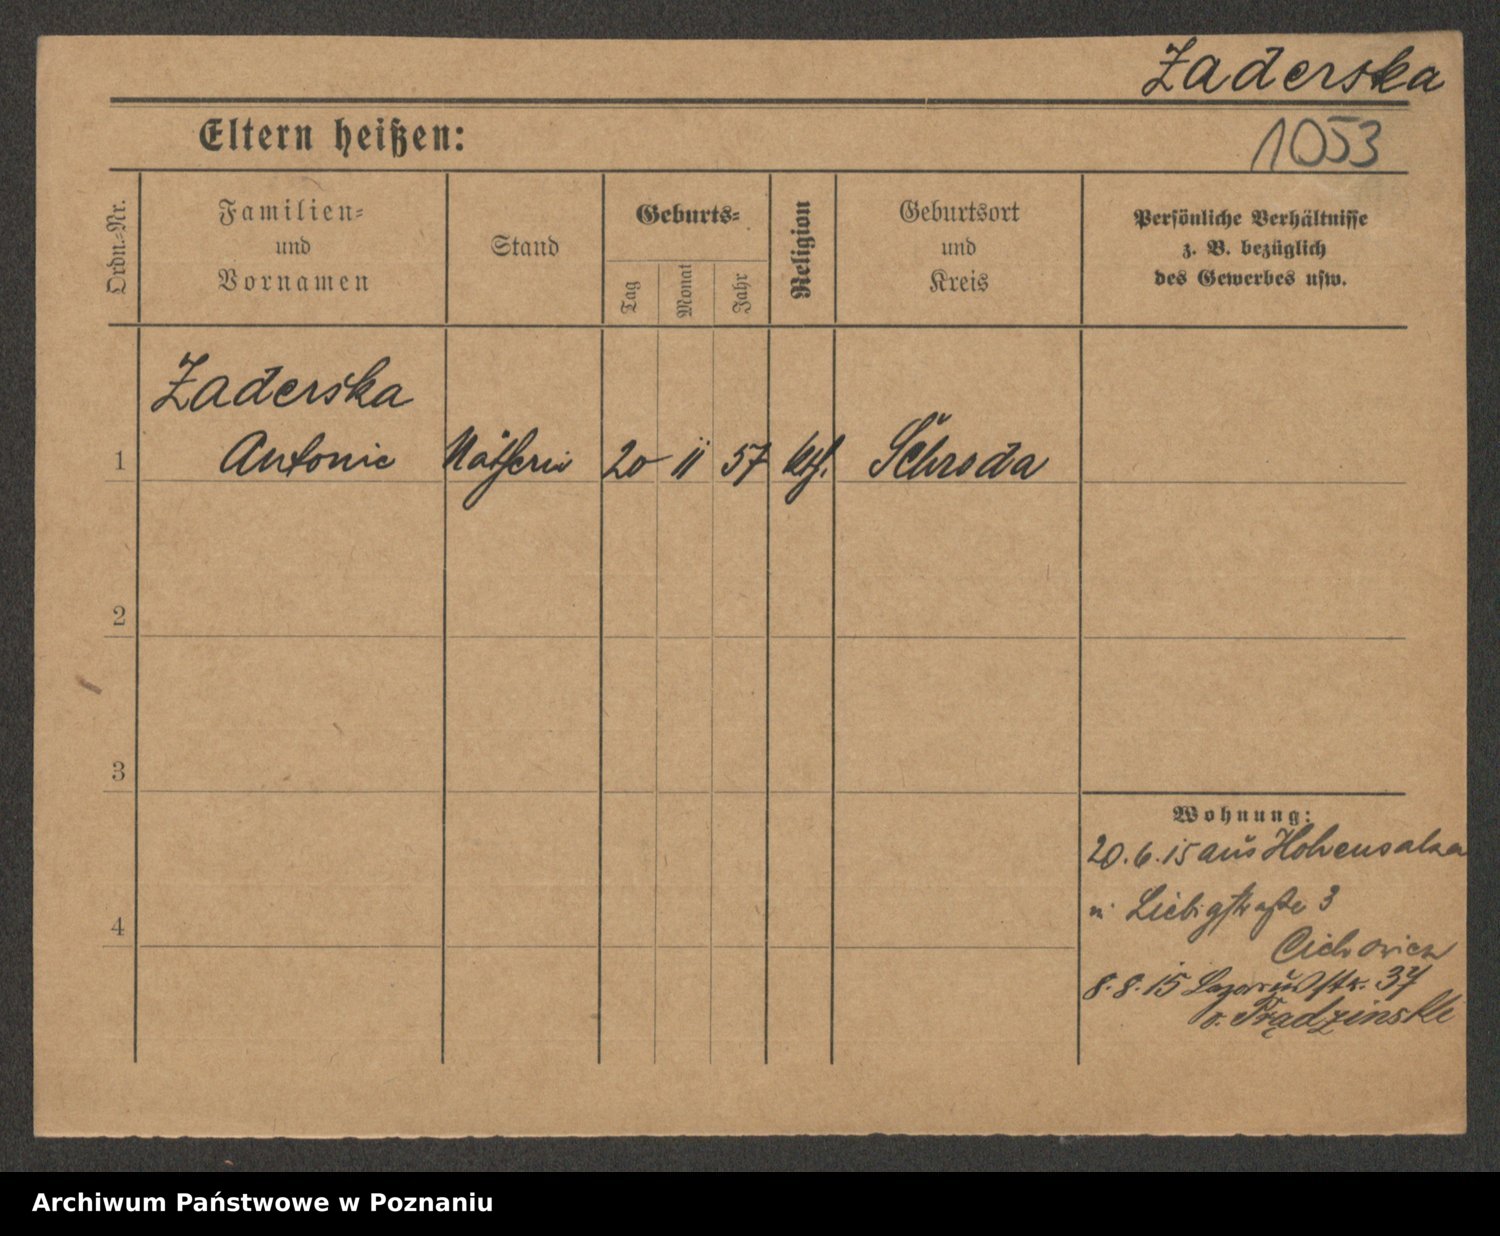 Zaderska
Eltern heißen:
1053
Ordn.-Nr.
Familien-
und
Vornamen
Stand
Geburts-
Tag
Monat
Jahr
Religion
Geburtsort
und
Kreis
Persönliche Verhältnisse
z. B. bezüglich
des Gewerbes usw.
Zaderska
1 Antonie Nätherin 20 11 57 kth. Schroda
2
3
4
Wohnung:
20.6.15 aus Hohensalza
n. Liebigstraße 3
Cichowicz
8.8.15 Lazarusstr. 37
b. Prądzinski